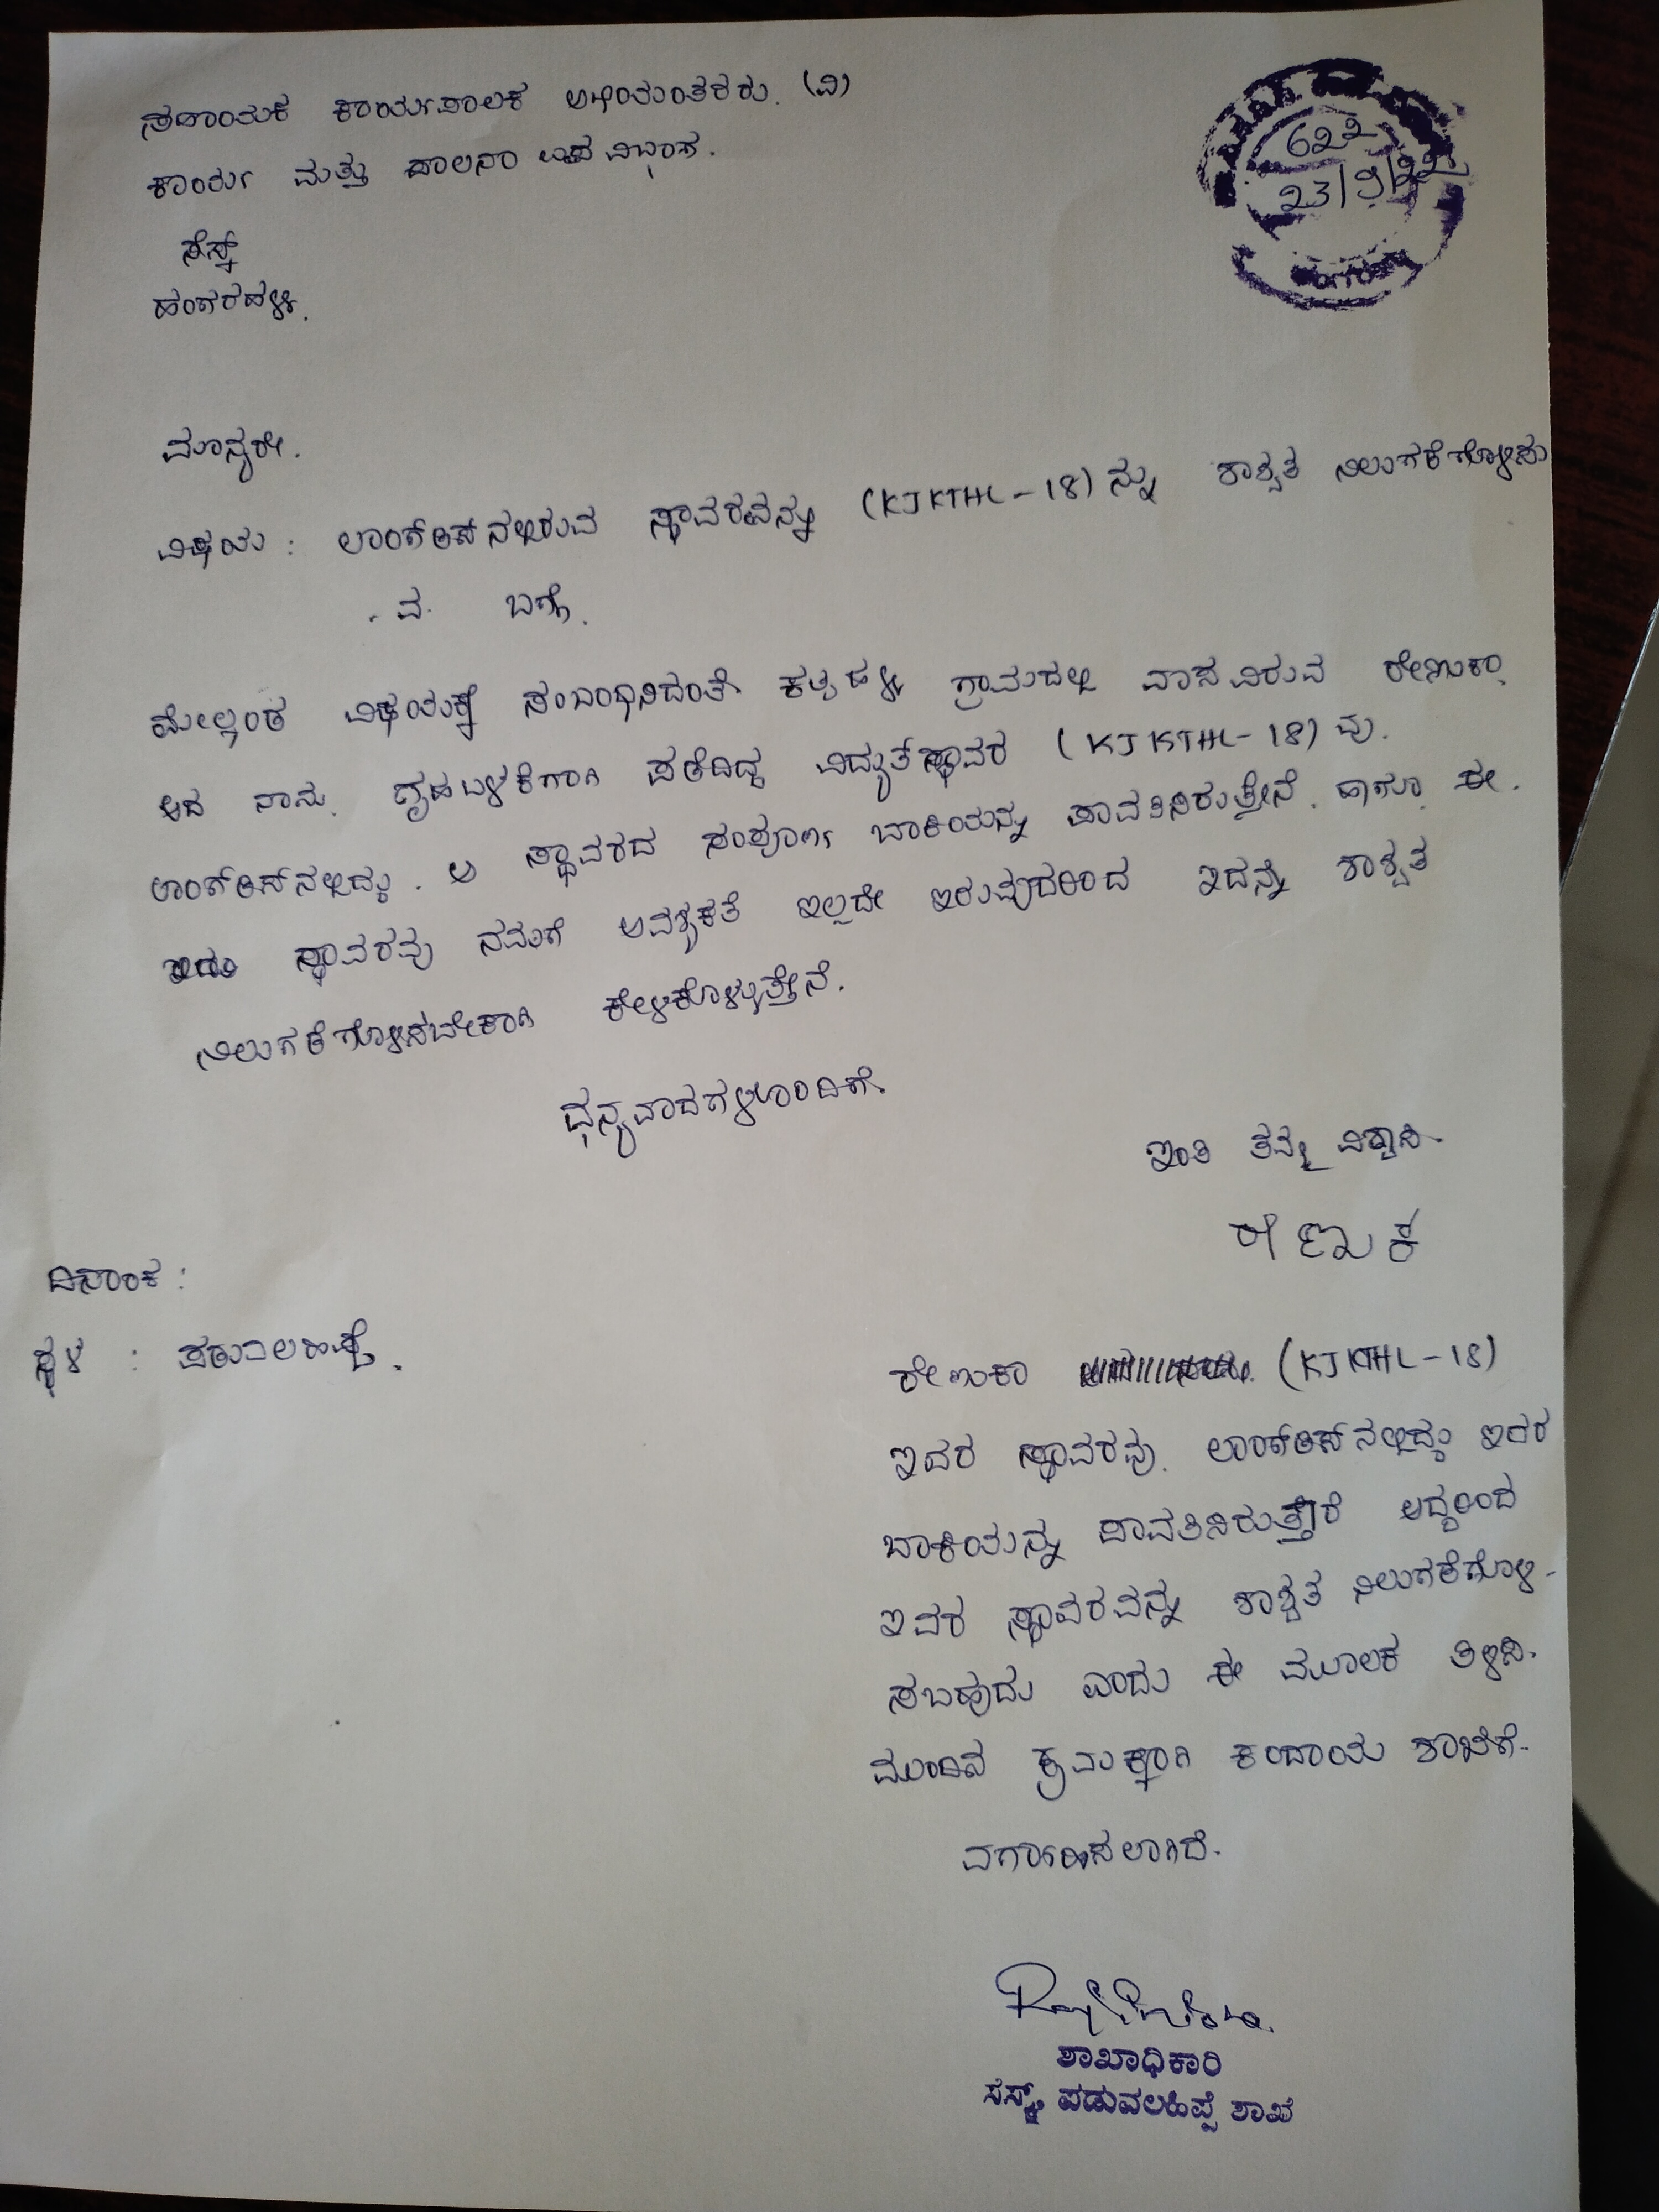 ಸಹಾಯಕ ಕಾರ್ಯಪಾಲಕ ಅಭಿಯಂತರರು. (ವಿ)
ಕಾರ್ಯ ಮತ್ತು ಪಾಲನಾ ಉಪವಿಭಾಗ.
ಸೆಸ್ಕ್
ಹಂಗರಹಳ್ಳಿ.
622
23/9/22
ಮಾನ್ಯರೇ.
ವಿಷಯ : ಲಾಂಗ್‌ಡಿಸ್‌ನಲ್ಲಿರುವ ಸ್ಥಾವರವನ್ನು (KJKTHL-18) ನ್ನು ಶಾಶ್ವತ ನಿಲುಗಡೆಗೊಳಿಸು
ವ ಬಗ್ಗೆ.
ಮೇಲ್ಕಂಡ ವಿಷಯಕ್ಕೆ ಸಂಬಂಧಿಸಿದಂತೆ ಗ್ರಾಮದಲ್ಲಿ ವಾಸವಿರುವ ರೇಣುಕಾ
ಆದ ನಾನು. ಗೃಹಬಳಕೆಗಾಗಿ ಪಡೆದಿದ್ದ ವಿದ್ಯುತ್‌ಸ್ಥಾವರ (KJKTHL-18) ವು.
ಲಾಂಗ್‌ಡಿಸ್‌ನಲ್ಲಿದ್ದು. ಆ ಸ್ಥಾವರದ ಸಂಪೂರ್ಣ ಬಾಕಿಯನ್ನು ಪಾವತಿಸಿರುತ್ತೇನೆ. ಹಾಗೂ ಈ.
ಸ್ಥಾವರವು ನಮಗೆ ಅವಶ್ಯಕತೆ ಇಲ್ಲದೇ ಇರುವುದರಿಂದ ಇದನ್ನು ಶಾಶ್ವತ
ನಿಲುಗಡೆಗೊಳಿಸಬೇಕಾಗಿ ಕೇಳಿಕೊಳ್ಳುತ್ತೇನೆ.
ಧನ್ಯವಾದಗಳೊಂದಿಗೆ.
ಇಂತಿ ತಮ್ಮ ವಿಶ್ವಾಸಿ.
ರೇಣುಕ
ದಿನಾಂಕ :
ಸ್ಥಳ : ಪಡುವಲಹಿಪ್ಪೆ.
ರೇಣುಕಾ (KJKTHL-18)
ಇವರ ಸ್ಥಾವರವು. ಲಾಂಗ್‌ಡಿಸ್‌ನಲ್ಲಿದ್ದು ಇದರ
ಬಾಕಿಯನ್ನು ಪಾವತಿಸಿರುತ್ತಾರೆ ಆದ್ದರಿಂದ
ಇವರ ಸ್ಥಾವರವನ್ನು ಶಾಶ್ವತ ನಿಲುಗಡೆಗೊಳಿ-
ಸಬಹುದು ಎಂದು ಈ ಮೂಲಕ ತಿಳಿಸಿ.
ಮುಂದಿನ ಕ್ರಮಕ್ಕಾಗಿ ಕಂದಾಯ ಶಾಖೆಗೆ-
ವರ್ಗಾಹಿಸಲಾಗಿದೆ.
ಶಾಖಾಧಿಕಾರಿ
ಸೆಸ್ಕ್, ಪಡುವಲಹಿಪ್ಪೆ ಶಾಖೆ